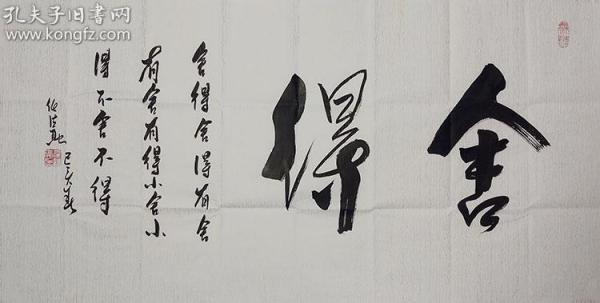 孔夫子旧书网
www.kongfz.com
舍得
舍得舍得有舍
有舍有得小舍小
得不舍不得
己亥春